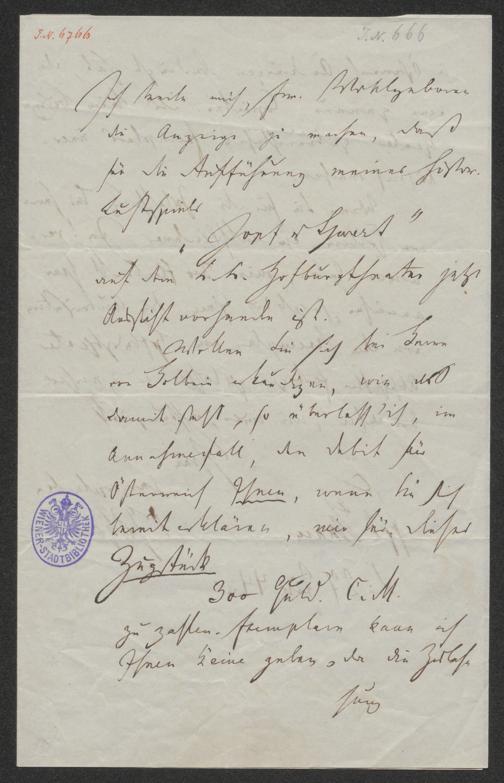 J.N. 6766
J.N. 666
Ich beeile mich, Ew. Wohlgeboren
die Anzeige zu machen, daß
für die Aufführung meines histor.
Lustspiels
„Zopf u Schwert"
auf dem k. k. Hofburgtheater jetzt
Aussicht vorhanden ist.
Wollen Sie sich bei Herrn
von Holbein erkundigen, wie es
damit steht, so überlass' ich, im
Annahmefall, den Debit für
Österreich Ihnen, wenn Sie sich
bereit erklären, mir für dieses
Zugstück
300 Guld. C.M.
zu zahlen. Exemplare kann ich
Ihnen keine geben, da die
WIENER STADTBIBLIOTHEK